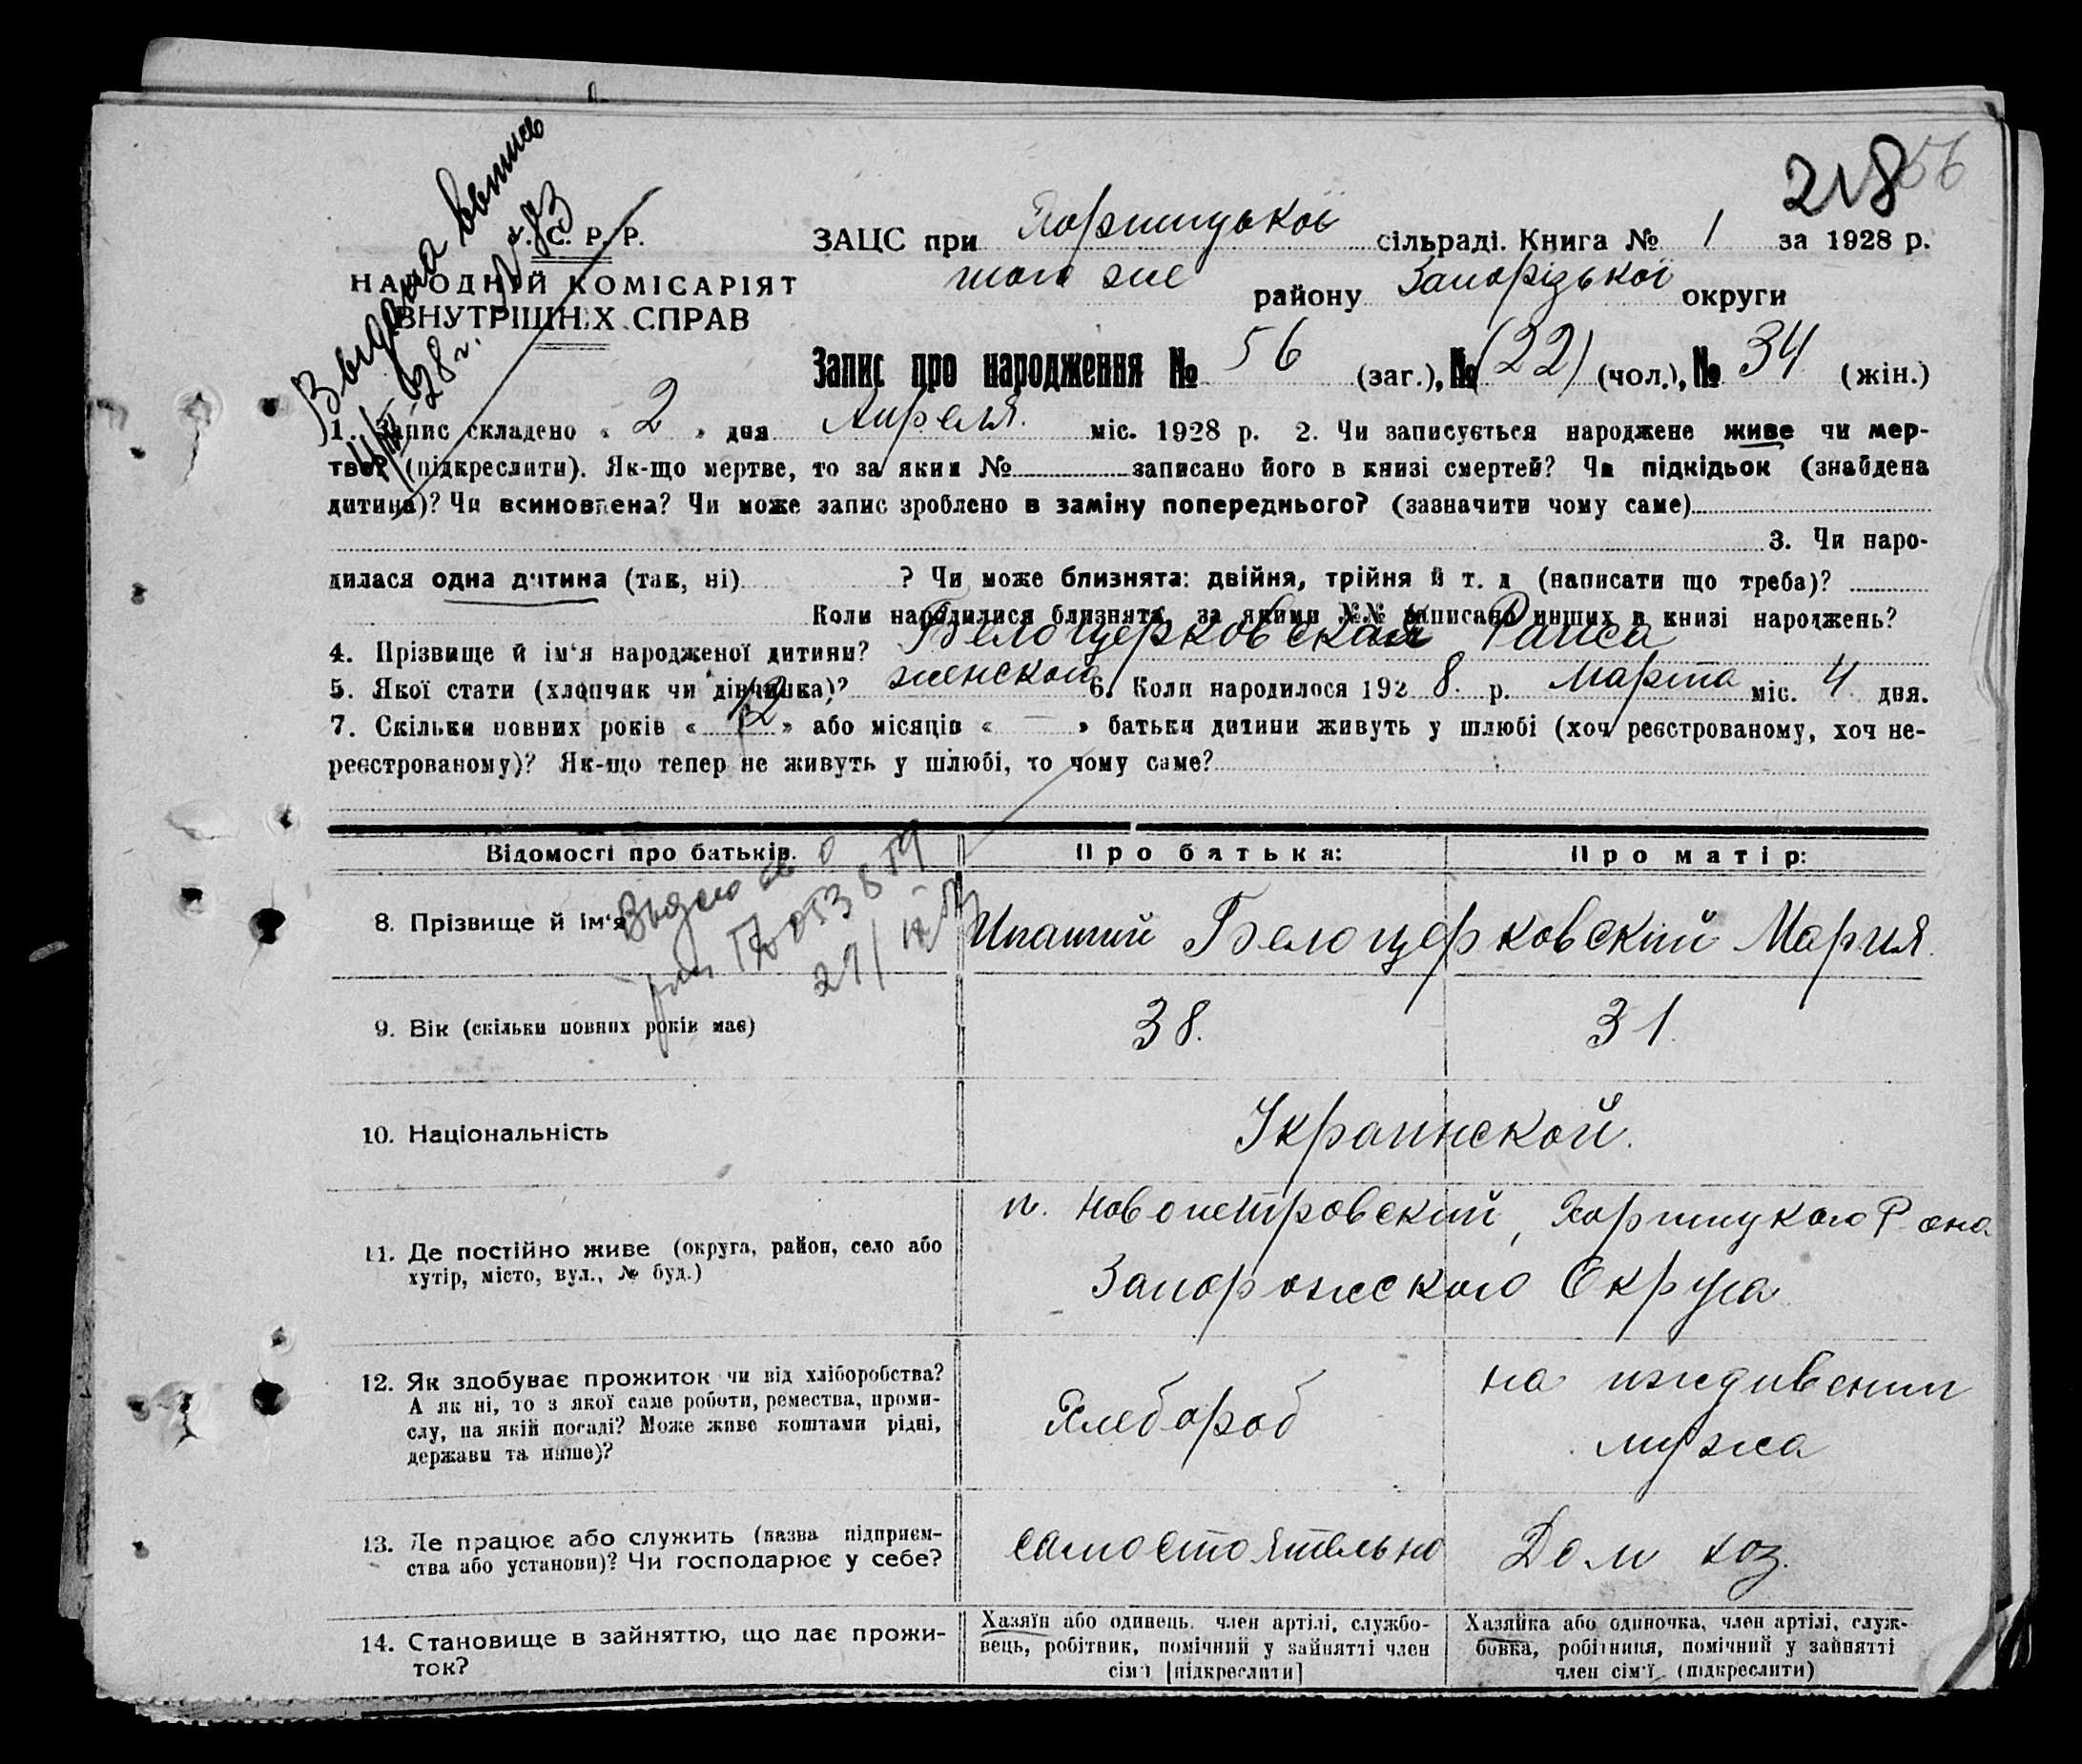 218 56
Выдана выпись
У. С. Р. Р.
НАРОДНІЙ КОМІСАРІЯТ
ВНУТРІШНІХ СПРАВ
ЗАЦС при Хортицької сільраді. Книга № 1 за 1928 р.
того же району Запорізької округи
Запис про народження № 56 (заг.), № (22) (чол.), № 34 (жін.)
1. Запис складено « 2 » дня Апреля. міс. 1928 р. 2. Чи записується народжене живе чи мер-
тве? (підкреслити). Як-що мертве, то за яким № записано його в книзі смертей? Чи підкідьок (знайдена
дитина)? Чи всиновлена? Чи може запис зроблено в заміну попереднього? (зазначити чому саме)
3. Чи наро-
дилася одна дитина (так, ні) ? Чи може близнята: двійня, трійня й т. д (написати що треба)?
Коли народилися близнята, за якими №№ записано инших в книзі народжень?
4. Прізвище й ім'я народженої дитини? Белоцерковская Раиса
5. Якої стати (хлопчик чи дівчинка)? женской 6. Коли народилося 1928. р. Марта міс. 4 дня.
7. Скільки повних років « 12 » або місяців « — » батьки дитини живуть у шлюбі (хоч реєстрованому, хоч не-
реєстрованому)? Як-що тепер не живуть у шлюбі, то чому саме?
Відомості про батьків. Про батька: Про матір:
8. Прізвище й ім'я Ипатий Белоцерковский Мария
9. Вік (скільки повних років має) 38. 31.
10. Національність Украинской.
11. Де постійно живе (округа, район, село або
хутір, місто, вул., № буд.)
п. Новопетровский, Хортицкого Р-она
Запорожского Округа
12. Як здобуває прожиток чи від хліборобства?
А як ні, то з якої саме роботи, ремества, проми-
слу, на якій посаді? Може живе коштами рідні,
держави та инше)?
Хлебороб
на иждивении
мужа
13. Де працює або служить (назва підприєм-
ства або установи)? Чи господарює у себе?
самостоятельно Дом хоз.
14. Становище в зайняттю, що дає прожи-
ток?
Хазяїн або одинець, член артілі, службо-
вець, робітник, помічний у зайнятті член
сім'ї [підкреслити]
Хазяйка або одиночка, член артілі, служ-
бовка, робітниця, помічний у зайнятті
член сім'ї (підкреслити)